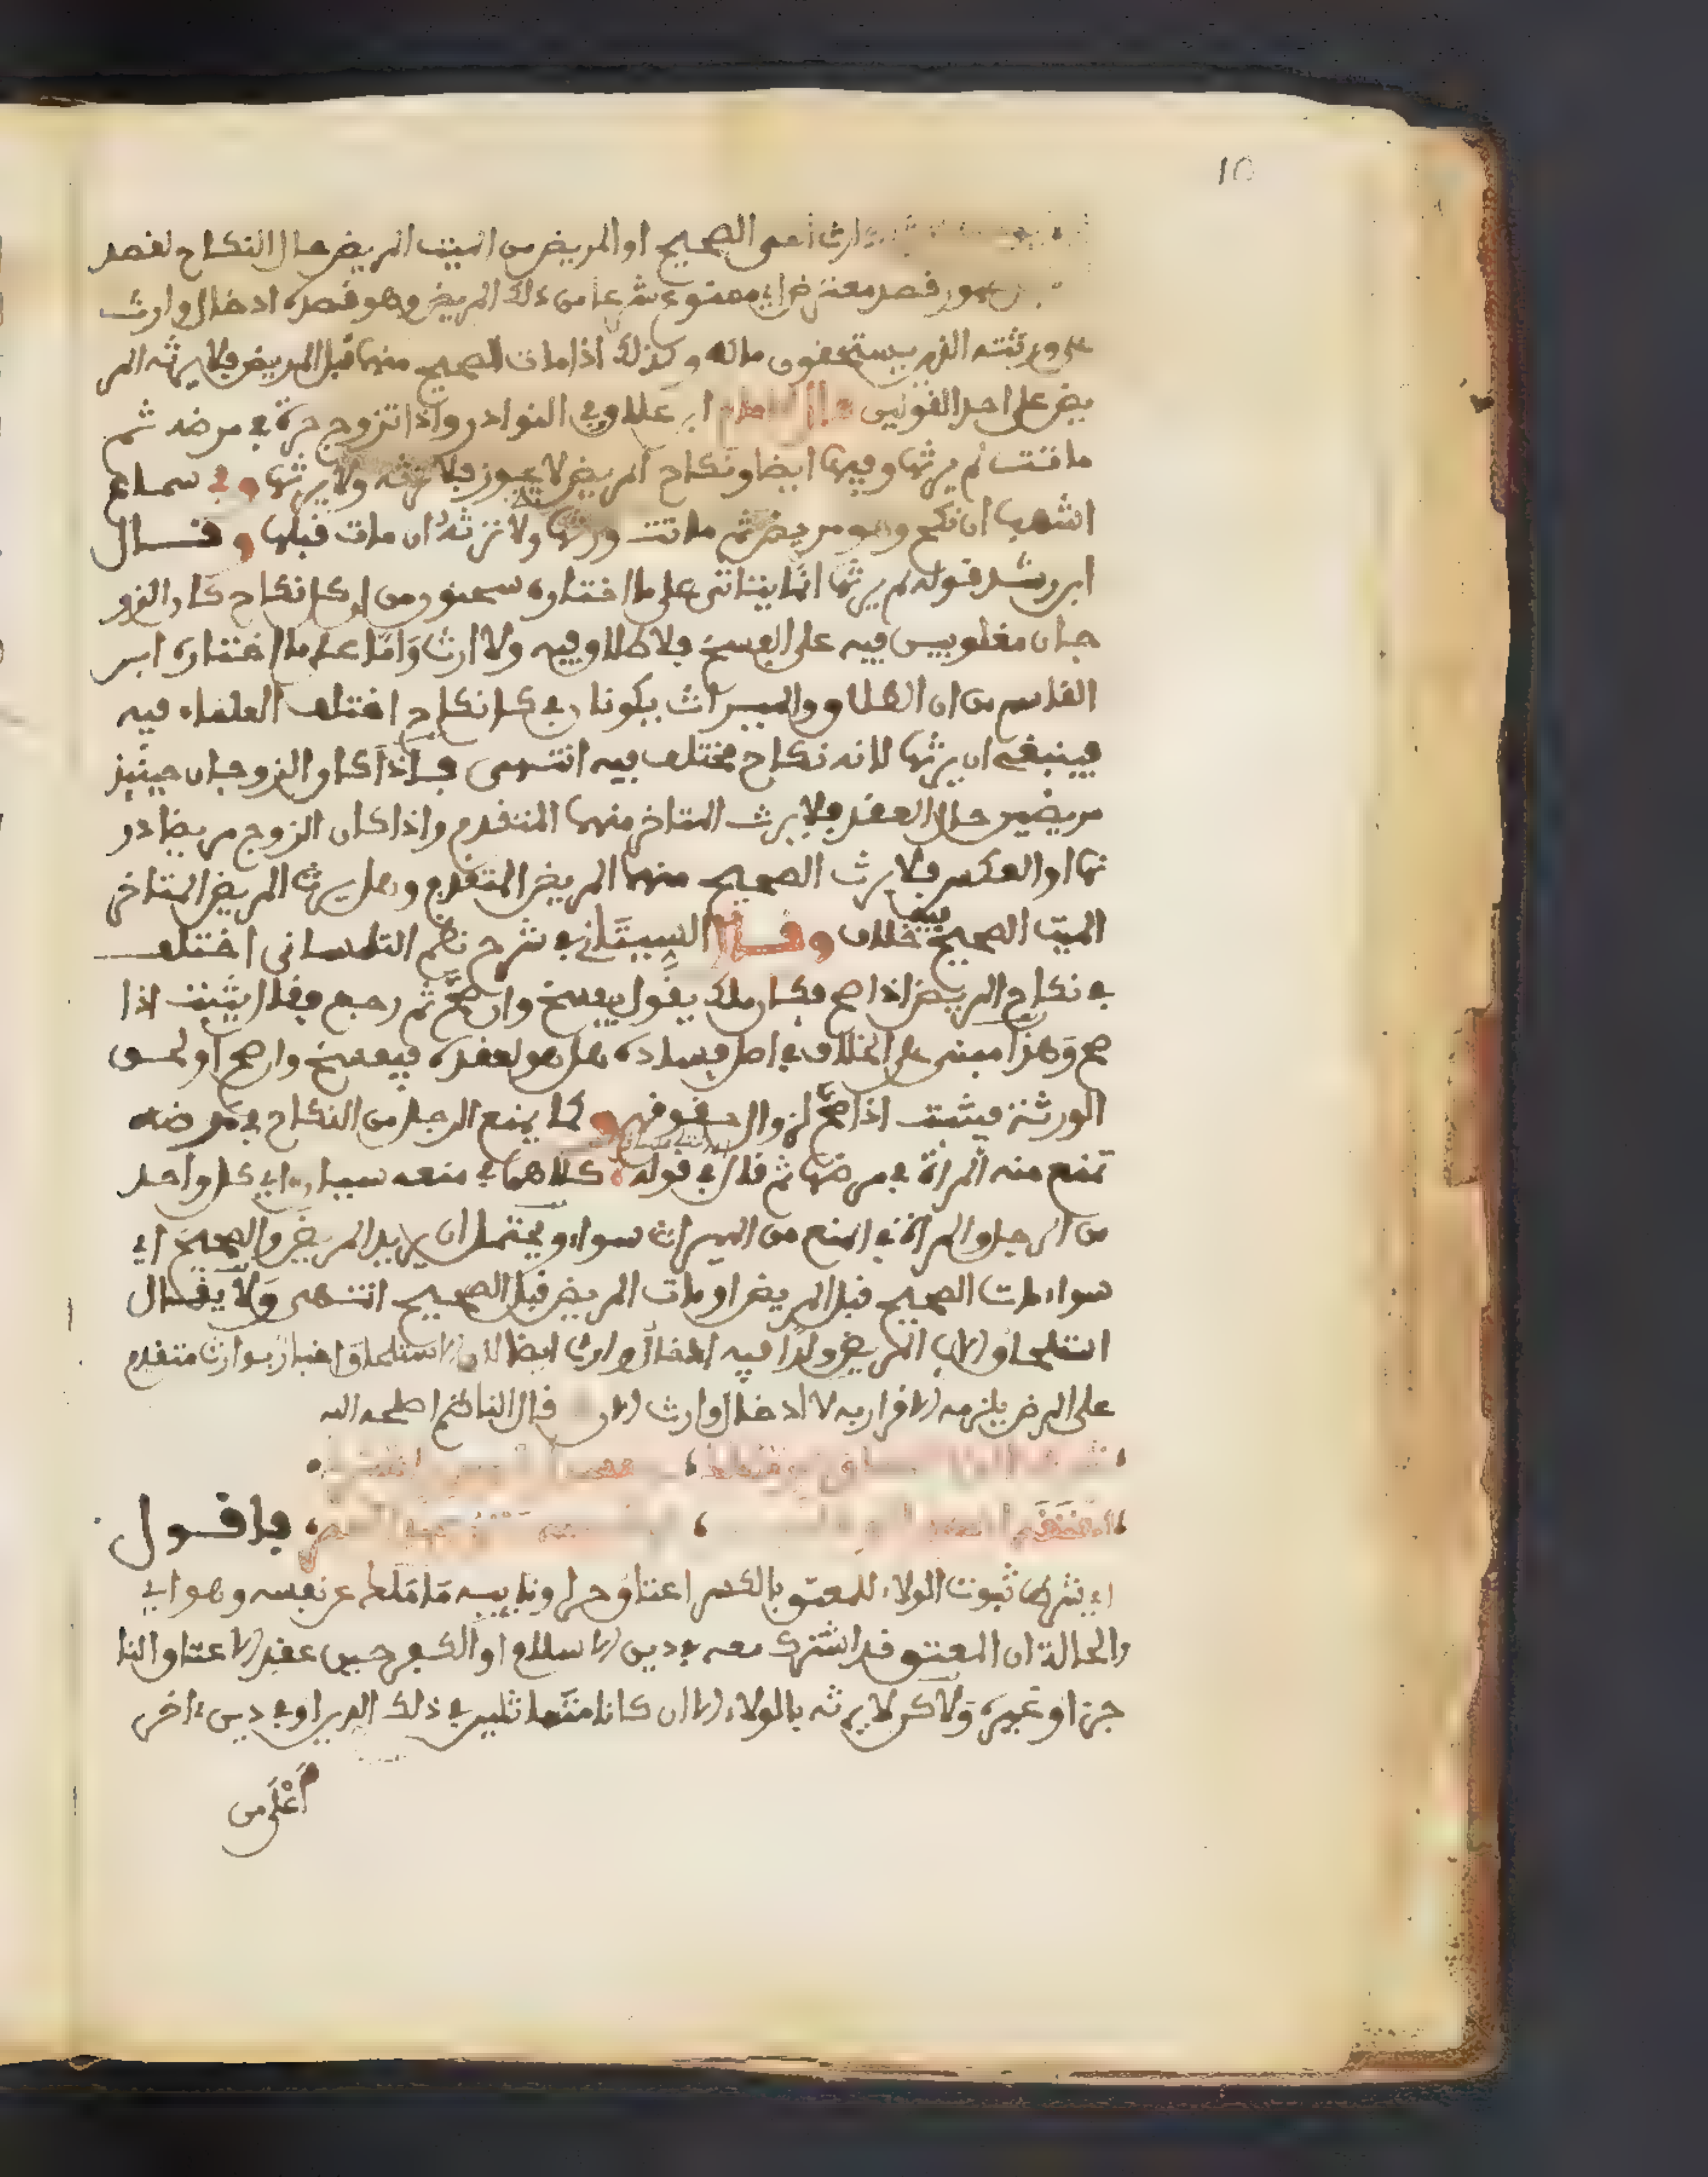 10
وارث أعني الصحيح او المريض من الميت المريض حال النكاح لقصد
قصد معترض اي ممنوع شرعا من ذلك المريض وهو قصده ادخال وارث
على ورثته الذين يستحقون ماله وكذلك اذا مات الصحيح منهما قبل المريض فلا يرثه المر
يض على احد القولين قال ابن علاق وفي النوادر واذا تزوج حرة في مرضه ثم
ماتت لم يرثها وفيها ايضا ونكاح المريض لا يجوز فلا ترثه ولا يرثها وفي سماع
اشهب ان نكح وهو مريض ثم ماتت ورثها ولا ترثه ان مات قبلها وقال
ابن رشد قوله لم يرثها انما يتاتى على ما اختاره سحنون من ان كل نكاح كان الزو
جان مغلوبين فيه على الفسخ فلا طلاق فيه ولا ارث وَامّا على ما اختاره ابن
القاسم من ان الطلاق والميراث يكونان في كل نكاح اختلف العلماء فيه
فينبغي ان يرثها لانه نكاح مختلف فيه انتهى فاذا كان الزوجان حينئذ
مريضين حال العقد فلا يرث المتاخر منهما المتقدم واذا كان الزوج مريضا دو
نها او العكس فلا يرث الصحيح منهما المريض المتقدم وهل يرث المريض المتاخر
الميت الصحيح فيه خلاف وقال السيتاني في شرح نظم التلمساني اختلف
في نكاح المريض اذا صح فكان ملك يقول يفسخ وان صح ثم رجع فقال يثبت اذا
صح وَهذا مبني على الخلاف في اصل فساده هل هو لعقده فيفسخ وان صح او لحق
الورثة فيثبت اذا صح لزوال حقوقهم وكما يمنع الرجل من النكاح في مرضه
تمنع منه المرأة في مرضها ثم قال في قوله كلاهما في منعه سيان اي كل واحد
من الرجل والمرأة في المنع من الميراث سواء ويحتمل ان يريد المريض والصحيح اي
سواء مات الصحيح قبل المريض او مات المريض قبل الصحيح انتهى وَلا يقال
استلحاق الاب المريض ولدا فيه ادخال وارث ايضا لان الاستلحاق اخبار بوارث متقدم
على المرض يلزمه الاقرار به لا ادخال وارث قال الناظم اصلحه الله
فاقول
اي يشرط ثبوت الولاء للمعتق بالكسر اعتاق حر او نايبه مَا مَلك عن نفسه وهو اي
والحالة ان المعتق قد اشترك معه في دين الاسلام او الكفر حين عقد الاعتاق النا
جز او غيره وَلاكن لا يرثه بالولاء الا ان كانا متماثلين في ذلك الدين او في دين ءاخر
أعْلى من